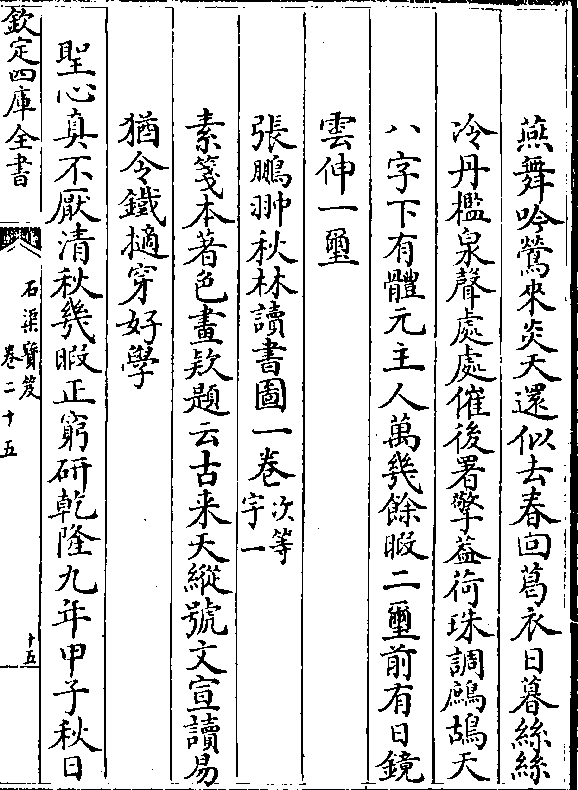 燕舞吟鶯來炎天還似去春回葛衣日暮絲絲
冷丹檻泉聲處處催後署擎葢荷珠調鷓鴣天
八字下有體元主人萬幾餘暇二璽前有日鏡
雲伸一璽
張鵬翀秋林讀書圖一卷次等宇一
素箋本著色畫欵題云古来天縱號文宣讀易
猶令鐵擿穿好學
聖心真不厭清秋幾暇正窮研乾隆九年甲子秋日
欽定四庫全書
石渠寳笈
卷二十五
十五